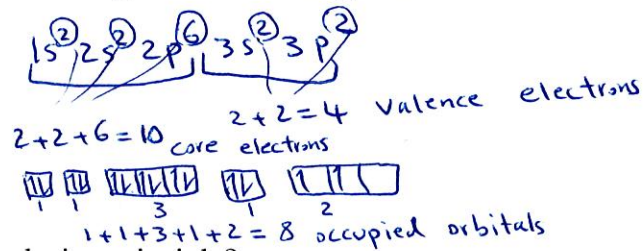 1s² 2s² 2p⁶ 3s² 3p²
2+2=4 valence electrons
2+2+6=10 core electrons
1 1 3 1 2
1+1+3+1+2 = 8 occupied orbitals